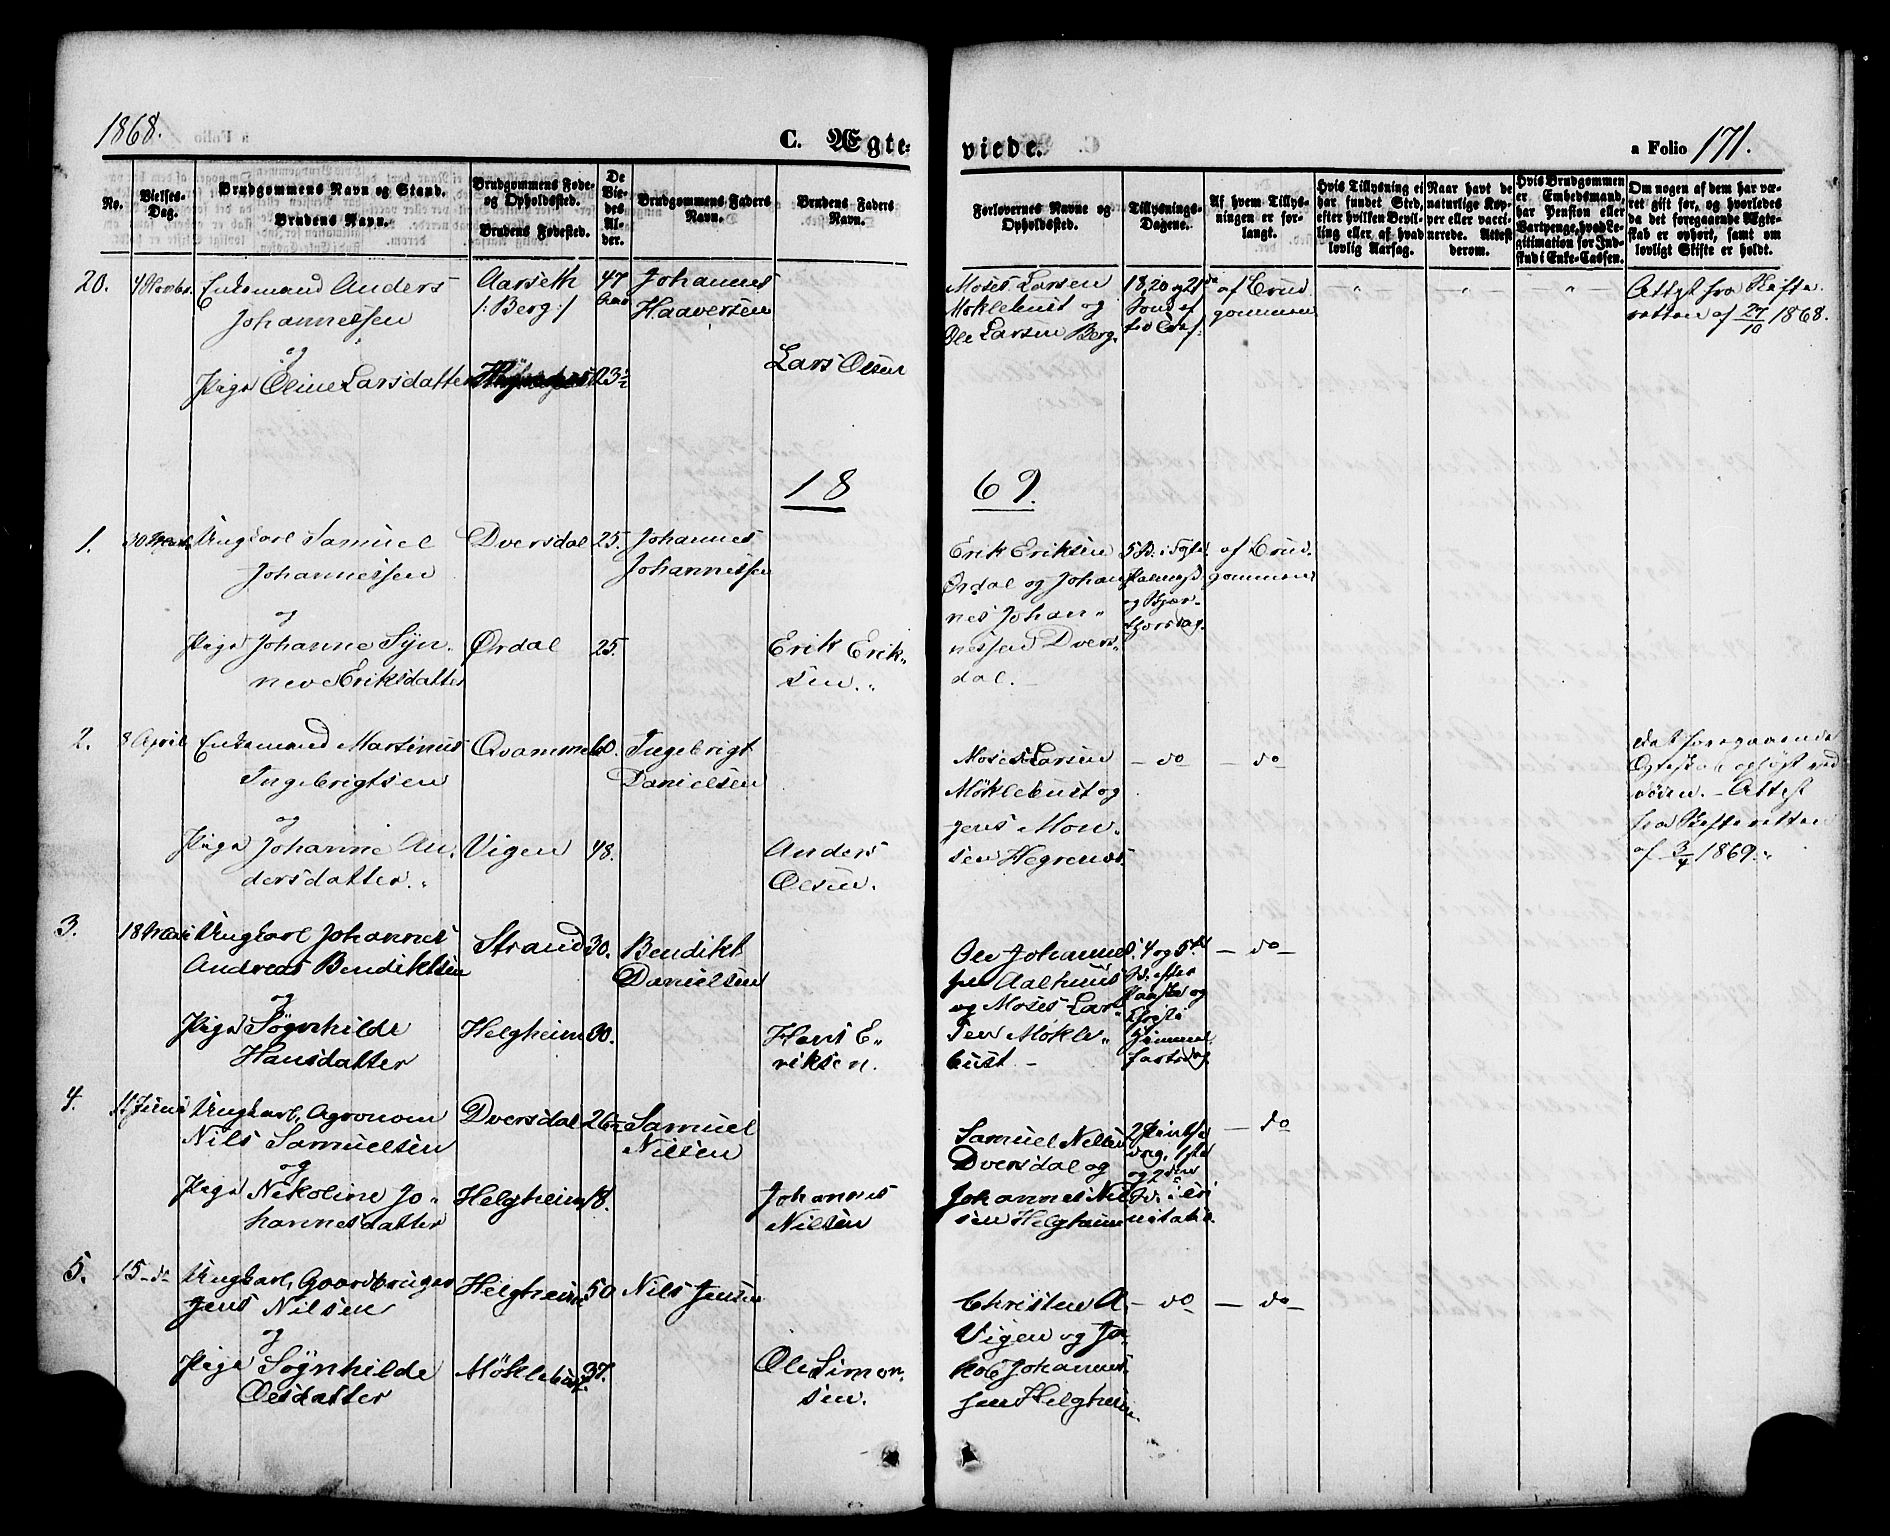 1868.
C. Ægte-
viede.
a Folio 171.
No.
Vielses-
Dag.
Brudgommens Navn og Stand.
Brudens Navn.
Brudgommens Føde-
og Opholdssted.
Brudens Fødested.
De
Vie-
des
Al-
der.
Brudgommens Faders
Navn.
Brudens Faders
Navn.
Forlovernes Navne og
Opholdssted.
Tillysnings-
Dagene.
Af hvem Tillys-
ningen er for-
langt.
Hvis Tillysning ei
har fundet Sted,
efter hvilken Bevil-
ling eller af hvad
lovlig Aarsag.
Naar havt de
naturlige Kop-
per eller vacci-
nerede. Attest
derom.
Hvis Brudgommen
er Embedsmand,
har Pension eller
Vartpenge, hvad Le-
gitimation for Ind-
skud i Enke-Cassen.
Om nogen af dem har væ-
ret gift før, og hvorledes
da det foregaaende Ægte-
skab er ophørt, samt om
lovligt Skifte er holdt.
20.
4 Novbr.
Enkemand Anders
Johannessen
og
Pige Oline Larsdatter
Aarseth
/: Berg :/
47
23½
Johannes
Haaversen
Lars Olsen
Moses Larsen
Møklebust og
Ole Larsen Berg.
18, 20 og 21de
Sond. ef
ter Tref.
af Brud
gommen
Attest fra Skifte
retten af 27/10 1868.
18
69.
1.
30 Marts
Ungkarl Samuel
Johannessen
og
Pige Johanne Syn.
neve Eriksdatter
Dversdal
Ørdal
25.
25.
Johannes
Johannessen
Erik Erik-
sen.
Erik Eriksen
Ørdal og Johan
nes Johan-
nessen Dvers-
dal.
5 S. i Faste
Palmes.
og Skjær-
thorsdag.
af Brud
gommen
2.
8 April
Enkemand Martinus
Ingebrigtsen
og
Pige Johanne An.
dersdatter.
Qvamme
Vigen
60.
48.
Ingebrigt
Danielsen
Anders
Olsen.
Moses Larsen
Møklebust og
Jens Mon-
sen Hegrenes.
— do
— do
Det foregaaende
Ægteskab opløst ved
døden. - Attest
fra Skifteretten
af 3/4 1869.
3.
18 Mai
Ungkarl Johannes
Andreas Bendiktsen
og
Pige Søgnhilde
Hansdatter
Strand
Helgheim
30.
30.
Bendikt
Danielsen
Hans E-
riksen.
Ole Johannes
sen Aalhuus
og Moses Lar-
sen Møkle-
bust -
3, 4 og 5te
S. efter
Paaske og
Christi
Himmel
fartsdag
— do —
4.
11 Juni
Ungkarl, Agronom
Nils Samuelsen
og
Pige Nikoline Jo-
hannesdatter
Dversdal
Helgheim
26½
18.
Samuel
Nilsen
Johannes
Nilsen
Samuel Nilsen
Dversdal og
Johannes Nil
sen Helgheim
2 Pintse
dag, 1ste
og 2den
S. i Tri
nitatis.
— do
5.
15 - do
Ungkarl, Gaardbruger
Jens Nilsen
og
Pige Søgnhilde
Olesdatter
Helgheim
Møklebust
50
37.
Nils Jensen
Ole Simon-
sen.
Christen A.
Vigen og Ja-
kob Johannes-
sen Helgheim.
— do
— do —